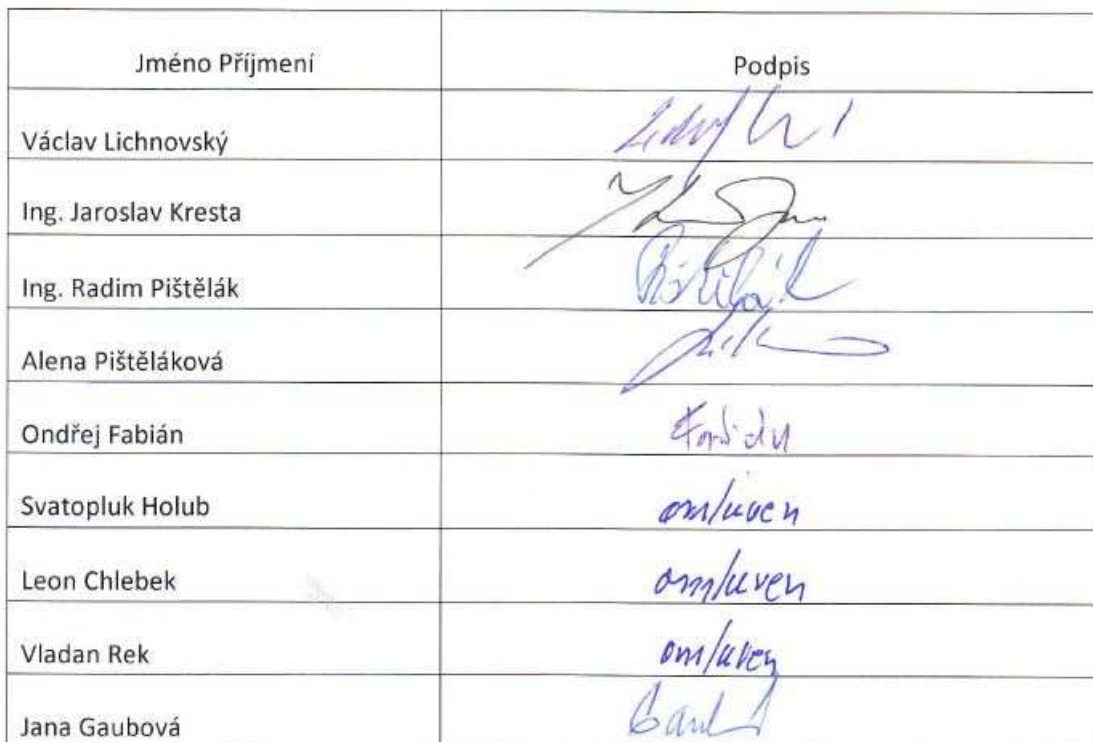 Jméno Příjmení Podpis
Václav Lichnovský
Ing. Jaroslav Kresta
Ing. Radim Pištělák
Alena Pištěláková
Ondřej Fabián
Svatopluk Holub omluven
Leon Chlebek omluven
Vladan Rek omluven
Jana Gaubová